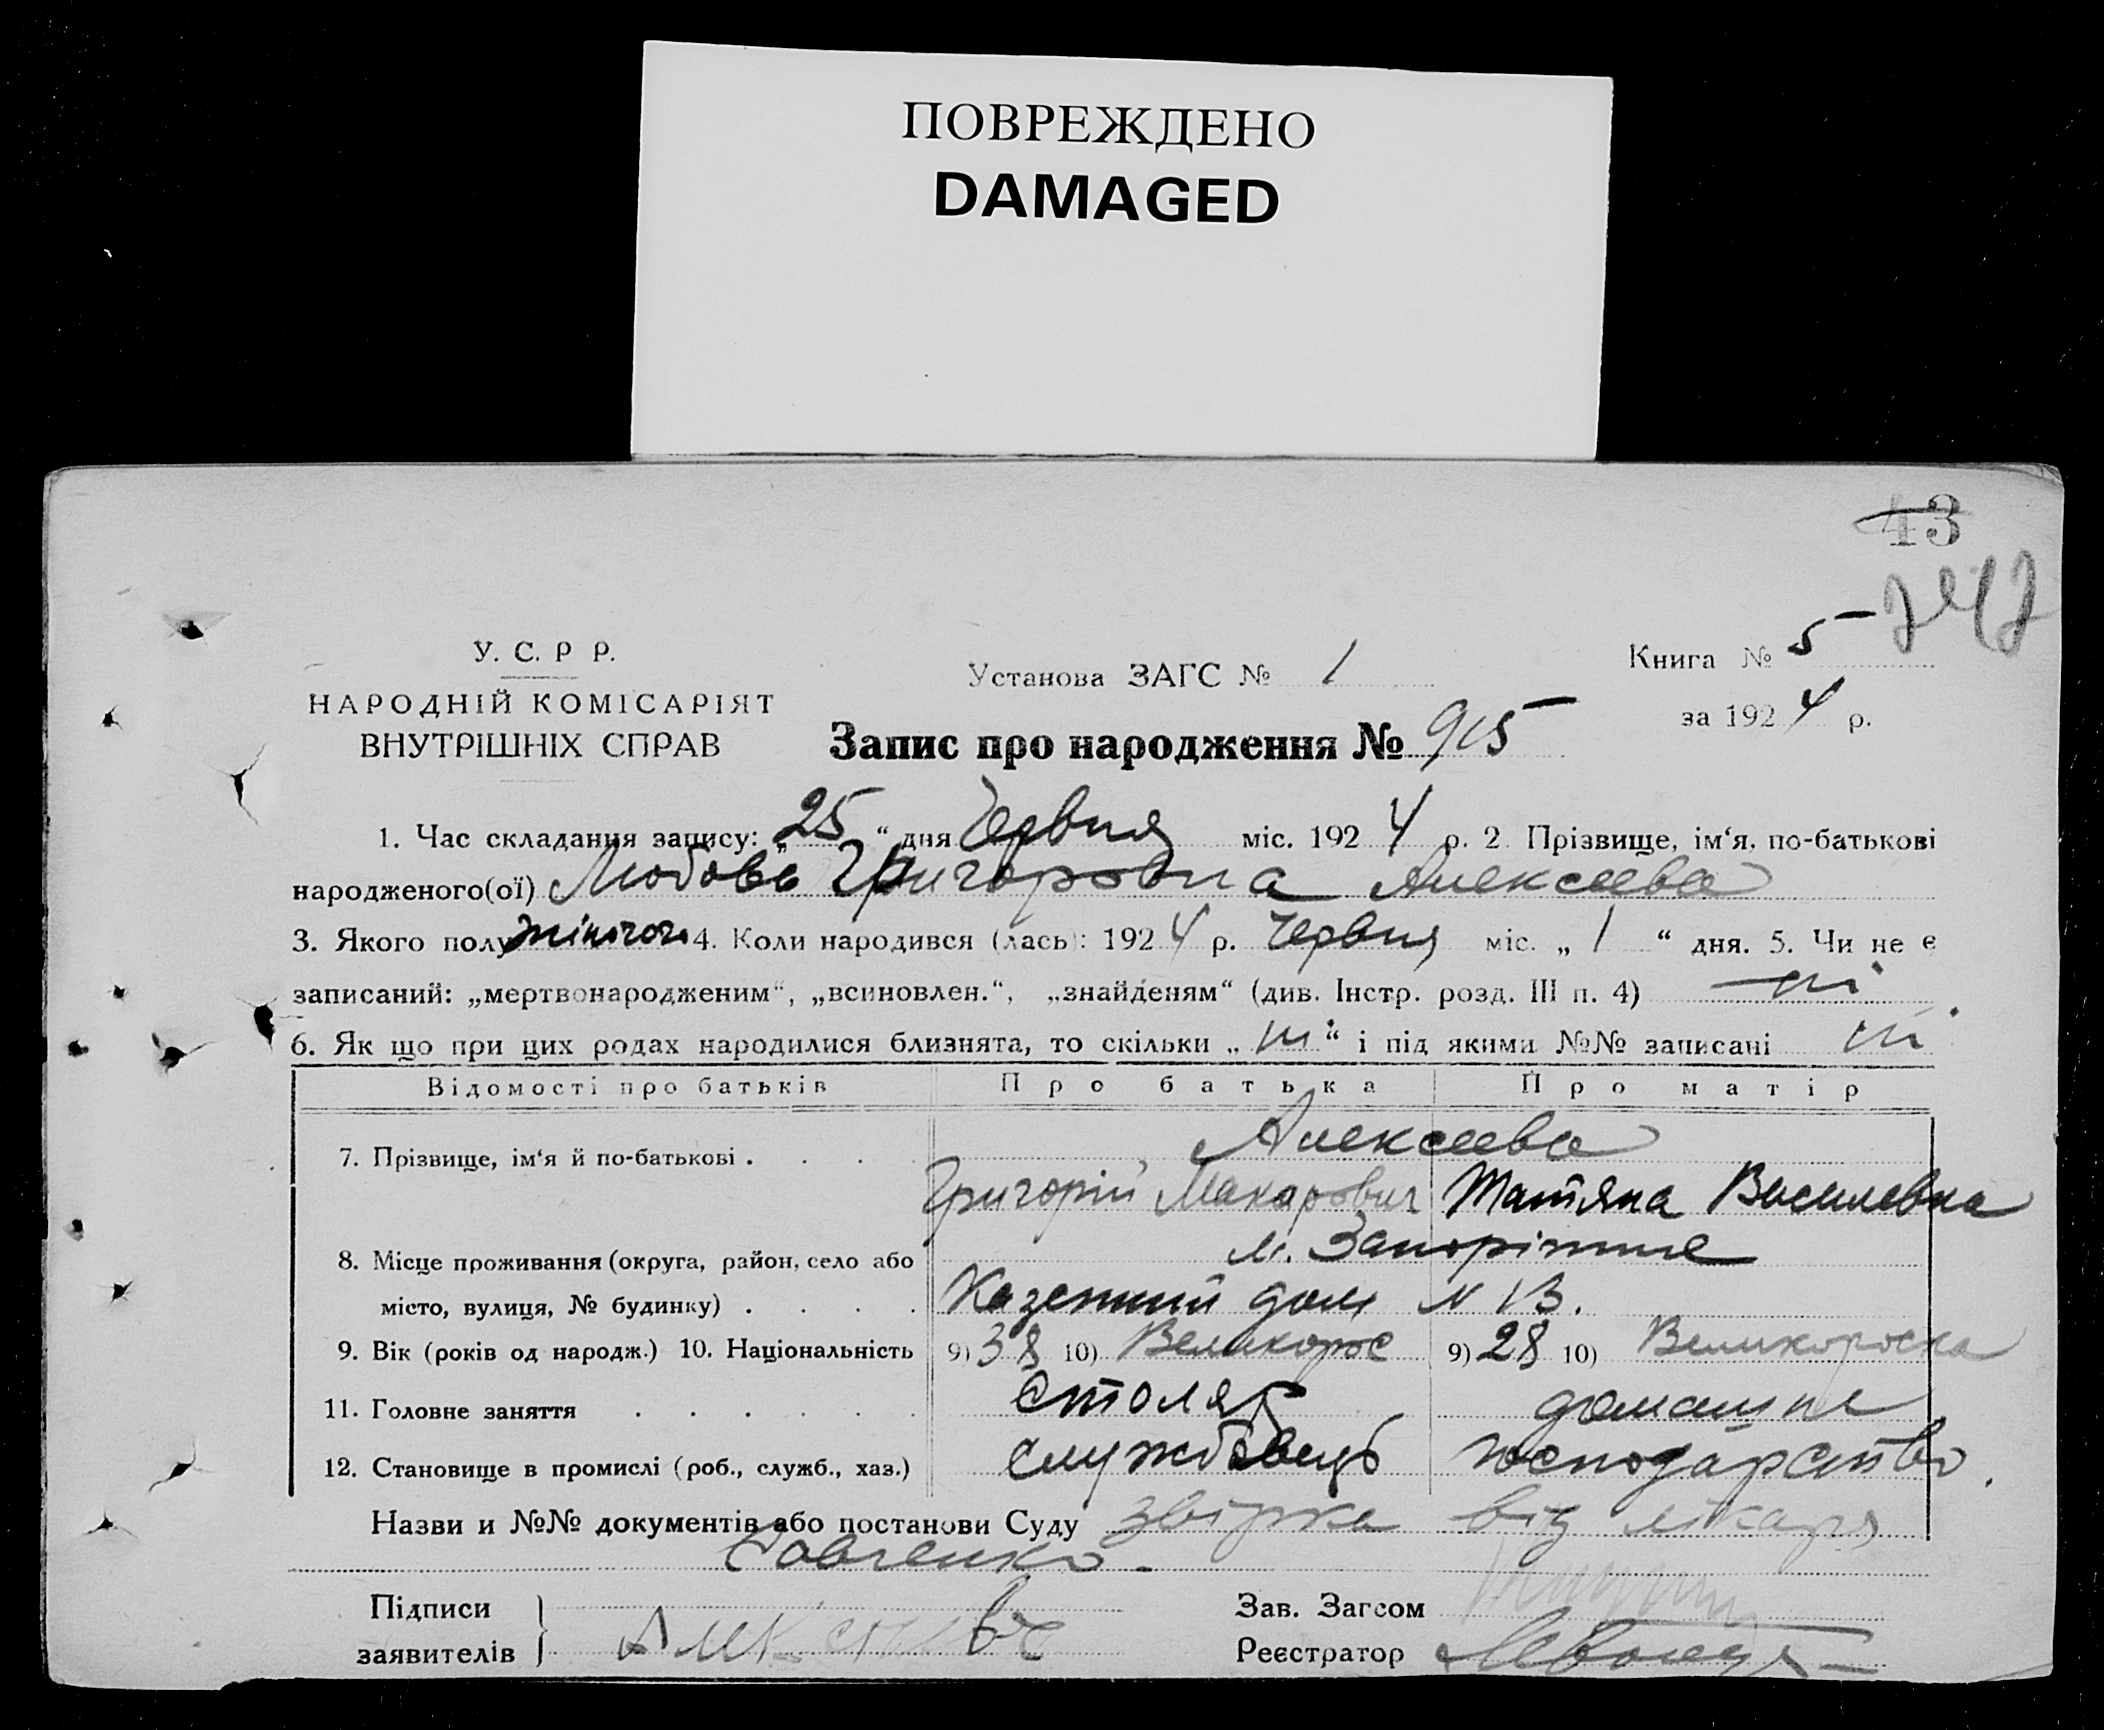 ПОВРЕЖДЕНО
DAMAGED
43
У. С. Р Р.
НАРОДНІЙ КОМІСАРІЯТ
ВНУТРІШНІХ СПРАВ
Установа ЗАГС № 1
Книга № 5
за 1924 р.
Запис про народження № 915
1. Час складання запису: „25“ дня Червня міс. 1924 р. 2 Прізвище, ім‘я, по-батькові
народженого(ої) Любовь Григоровна Алексеева
3. Якого полу жіночого 4. Коли народився (лась): 1924 р. Червня міс. „1“ дня. 5. Чи не є
записаний: „мертвонародженим“, „всиновлен.“, „знайденям“ (див. Інстр. розд. III п. 4) ні
6. Як що при цих родах народилися близнята, то скільки „ні“ і під якими №№ записані ні
Відомості про батьків Про батька Про матір
7. Прізвище, ім‘я й по-батькові . . . . Алексеева
Григорій Макарович Татяна Василевна
8. Місце проживання (округа, район, село або м. Запоріжжє
місто, вулиця, № будинку) . . . . Казенний дом N 13.
9. Вік (років од народж.) 10. Національність 9) 38 10) Великорос 9) 28 10) Великороска
11. Головне заняття . . . . . . столяр домашнє
12. Становище в промислі (роб., служб., хаз.) службовець господарство.
Назви и №№ документів або постанови Суду від лікаря
Савченко.
Підписи
заявителів
Зав. Загсом
Реєстратор